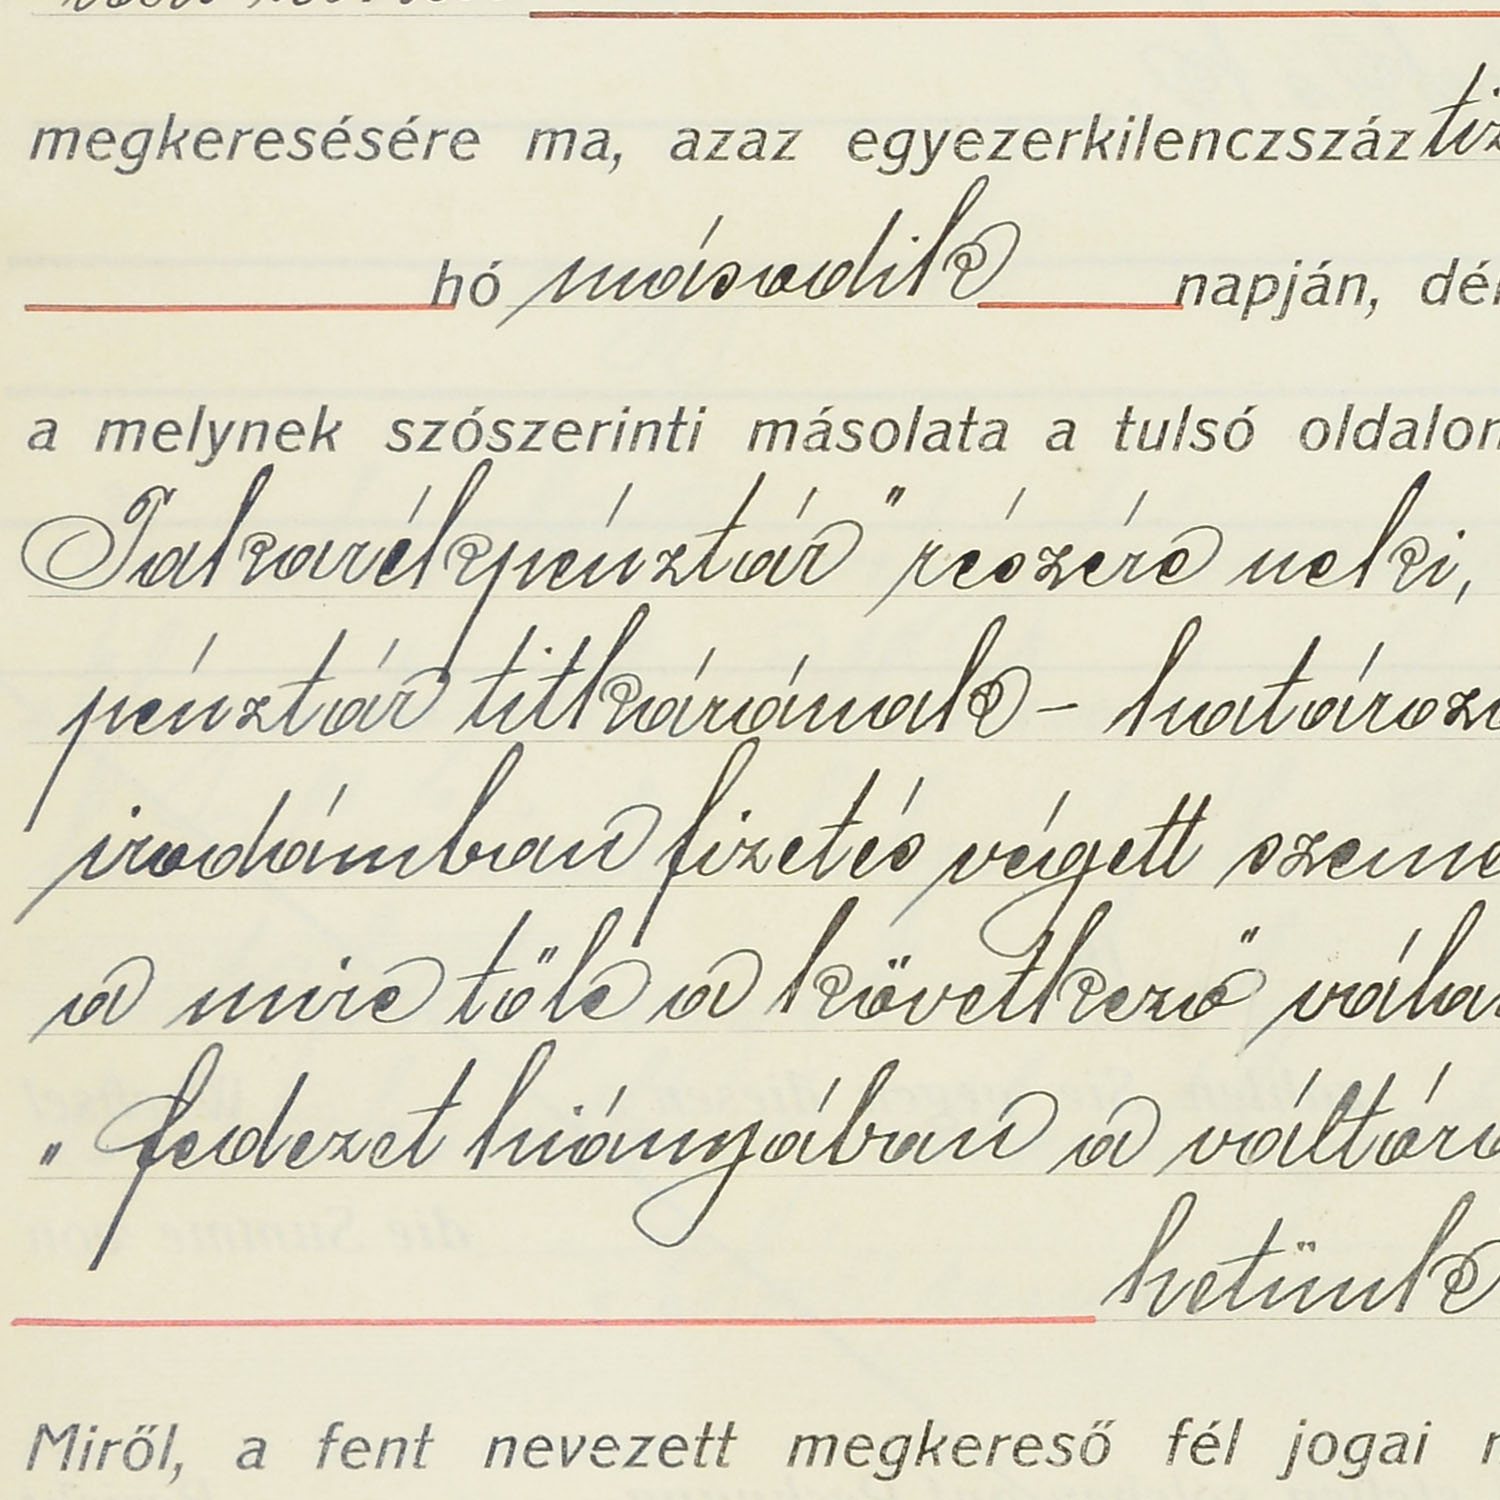 megkeresésére ma, azaz egyezerkilenczszáz tiz
hó második napján, dél
a melynek szószerinti másolata a tulsó oldalon
Takarékpénztár" részére neki,
pénztár titkárának – határoz
irodámban fizetés végett szeme
a mire tőle a következő vála
„fedezet hiányában a váltóra
hetünk
Miről, a fent nevezett megkereső fél jogai